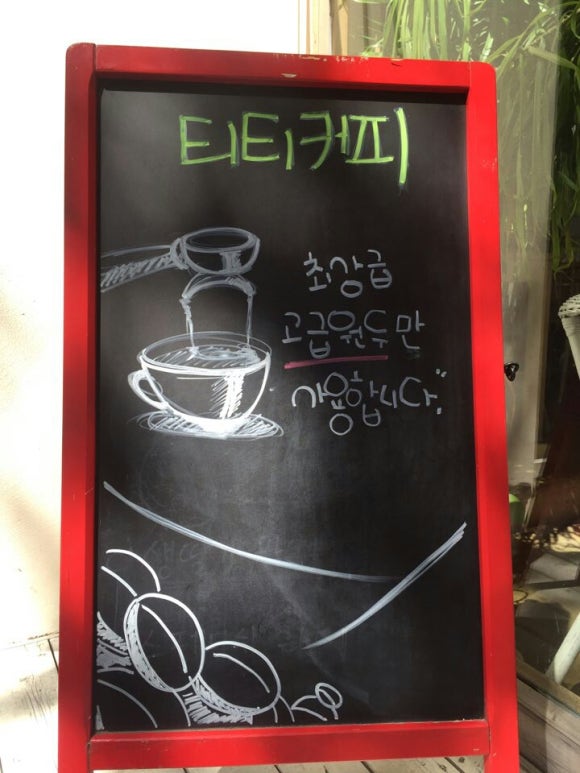 티티커피
최강급
고급원두만
사용합니다.